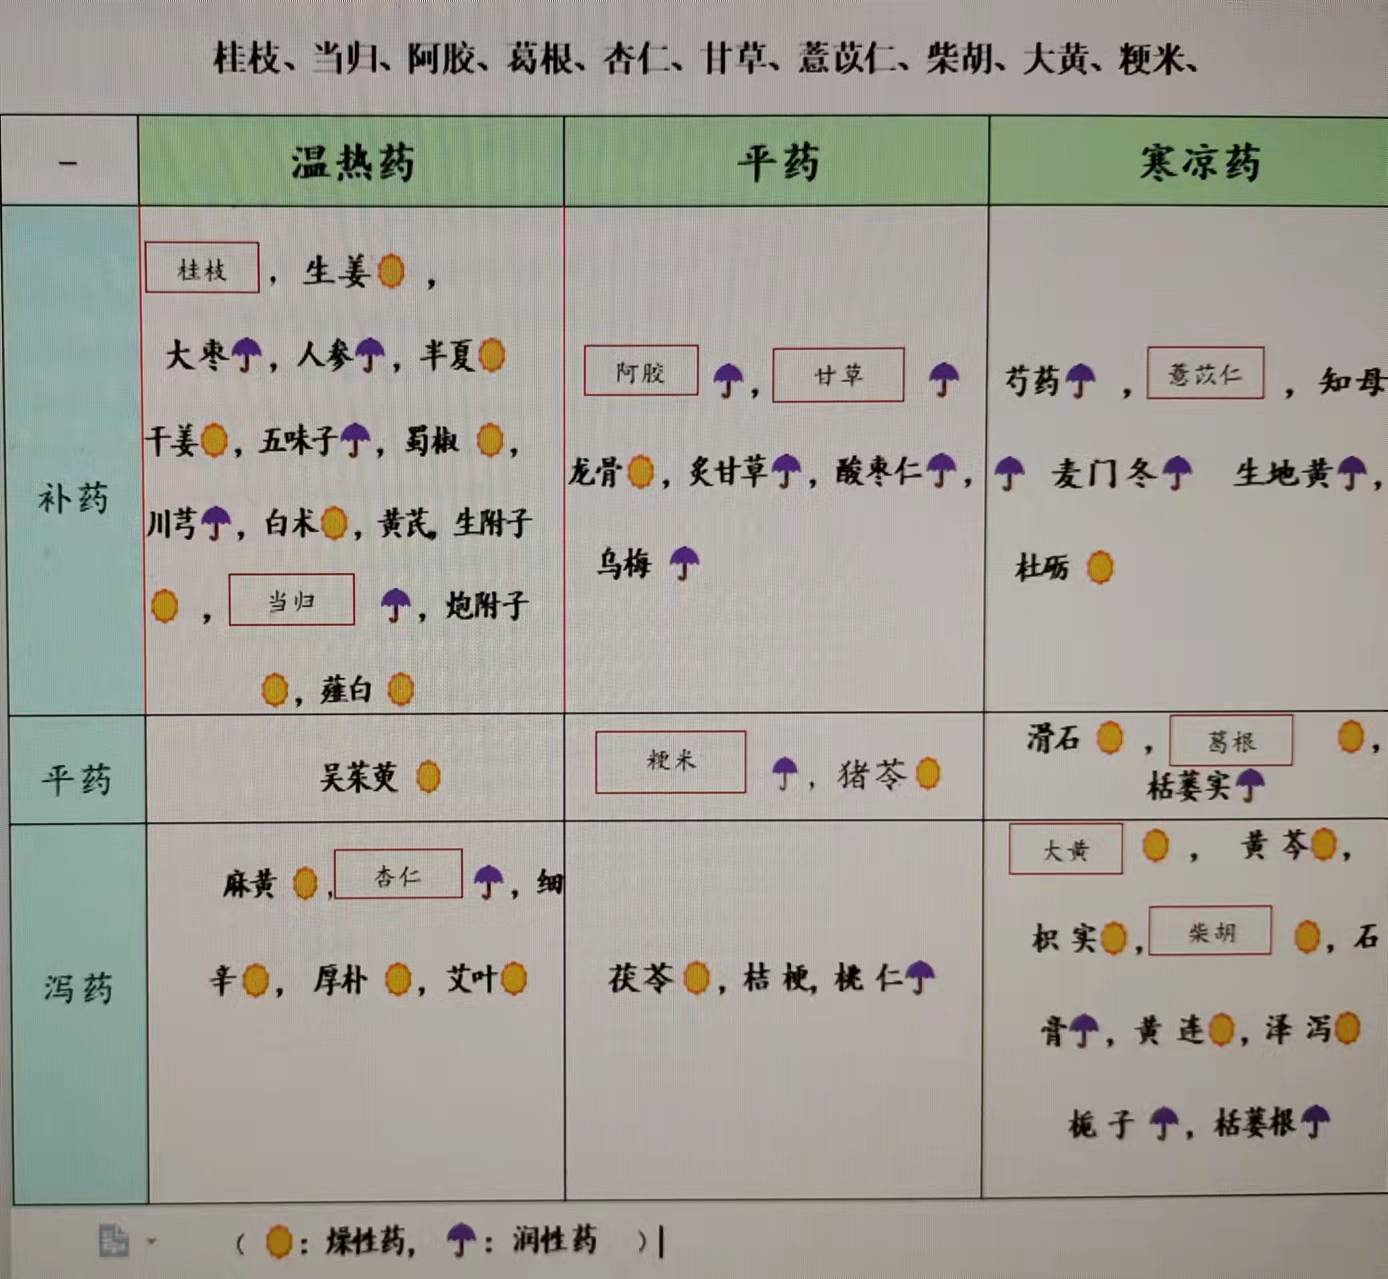 桂枝、当归、阿胶、葛根、杏仁、甘草、薏苡仁、柴胡、大黄、粳米、
— 温热药 平药 寒凉药
补药
桂枝，生姜，
大枣，人参，半夏
干姜，五味子，蜀椒，
川芎，白术，黄芪。生附子
，当归，炮附子
，薤白
阿胶，甘草
龙骨，炙甘草，酸枣仁，
乌梅
芍药，薏苡仁，知母
麦门冬 生地黄，
杜砺
平药
吴茱萸
粳米，猪苓
滑石，葛根，
栝蒌实
泻药
麻黄，杏仁，细
辛，厚朴，艾叶
茯苓，桔梗，桃仁
大黄，黄芩，
枳实，柴胡，石
膏，黄连，泽泻
栀子，栝蒌根
（：燥性药，：润性药）